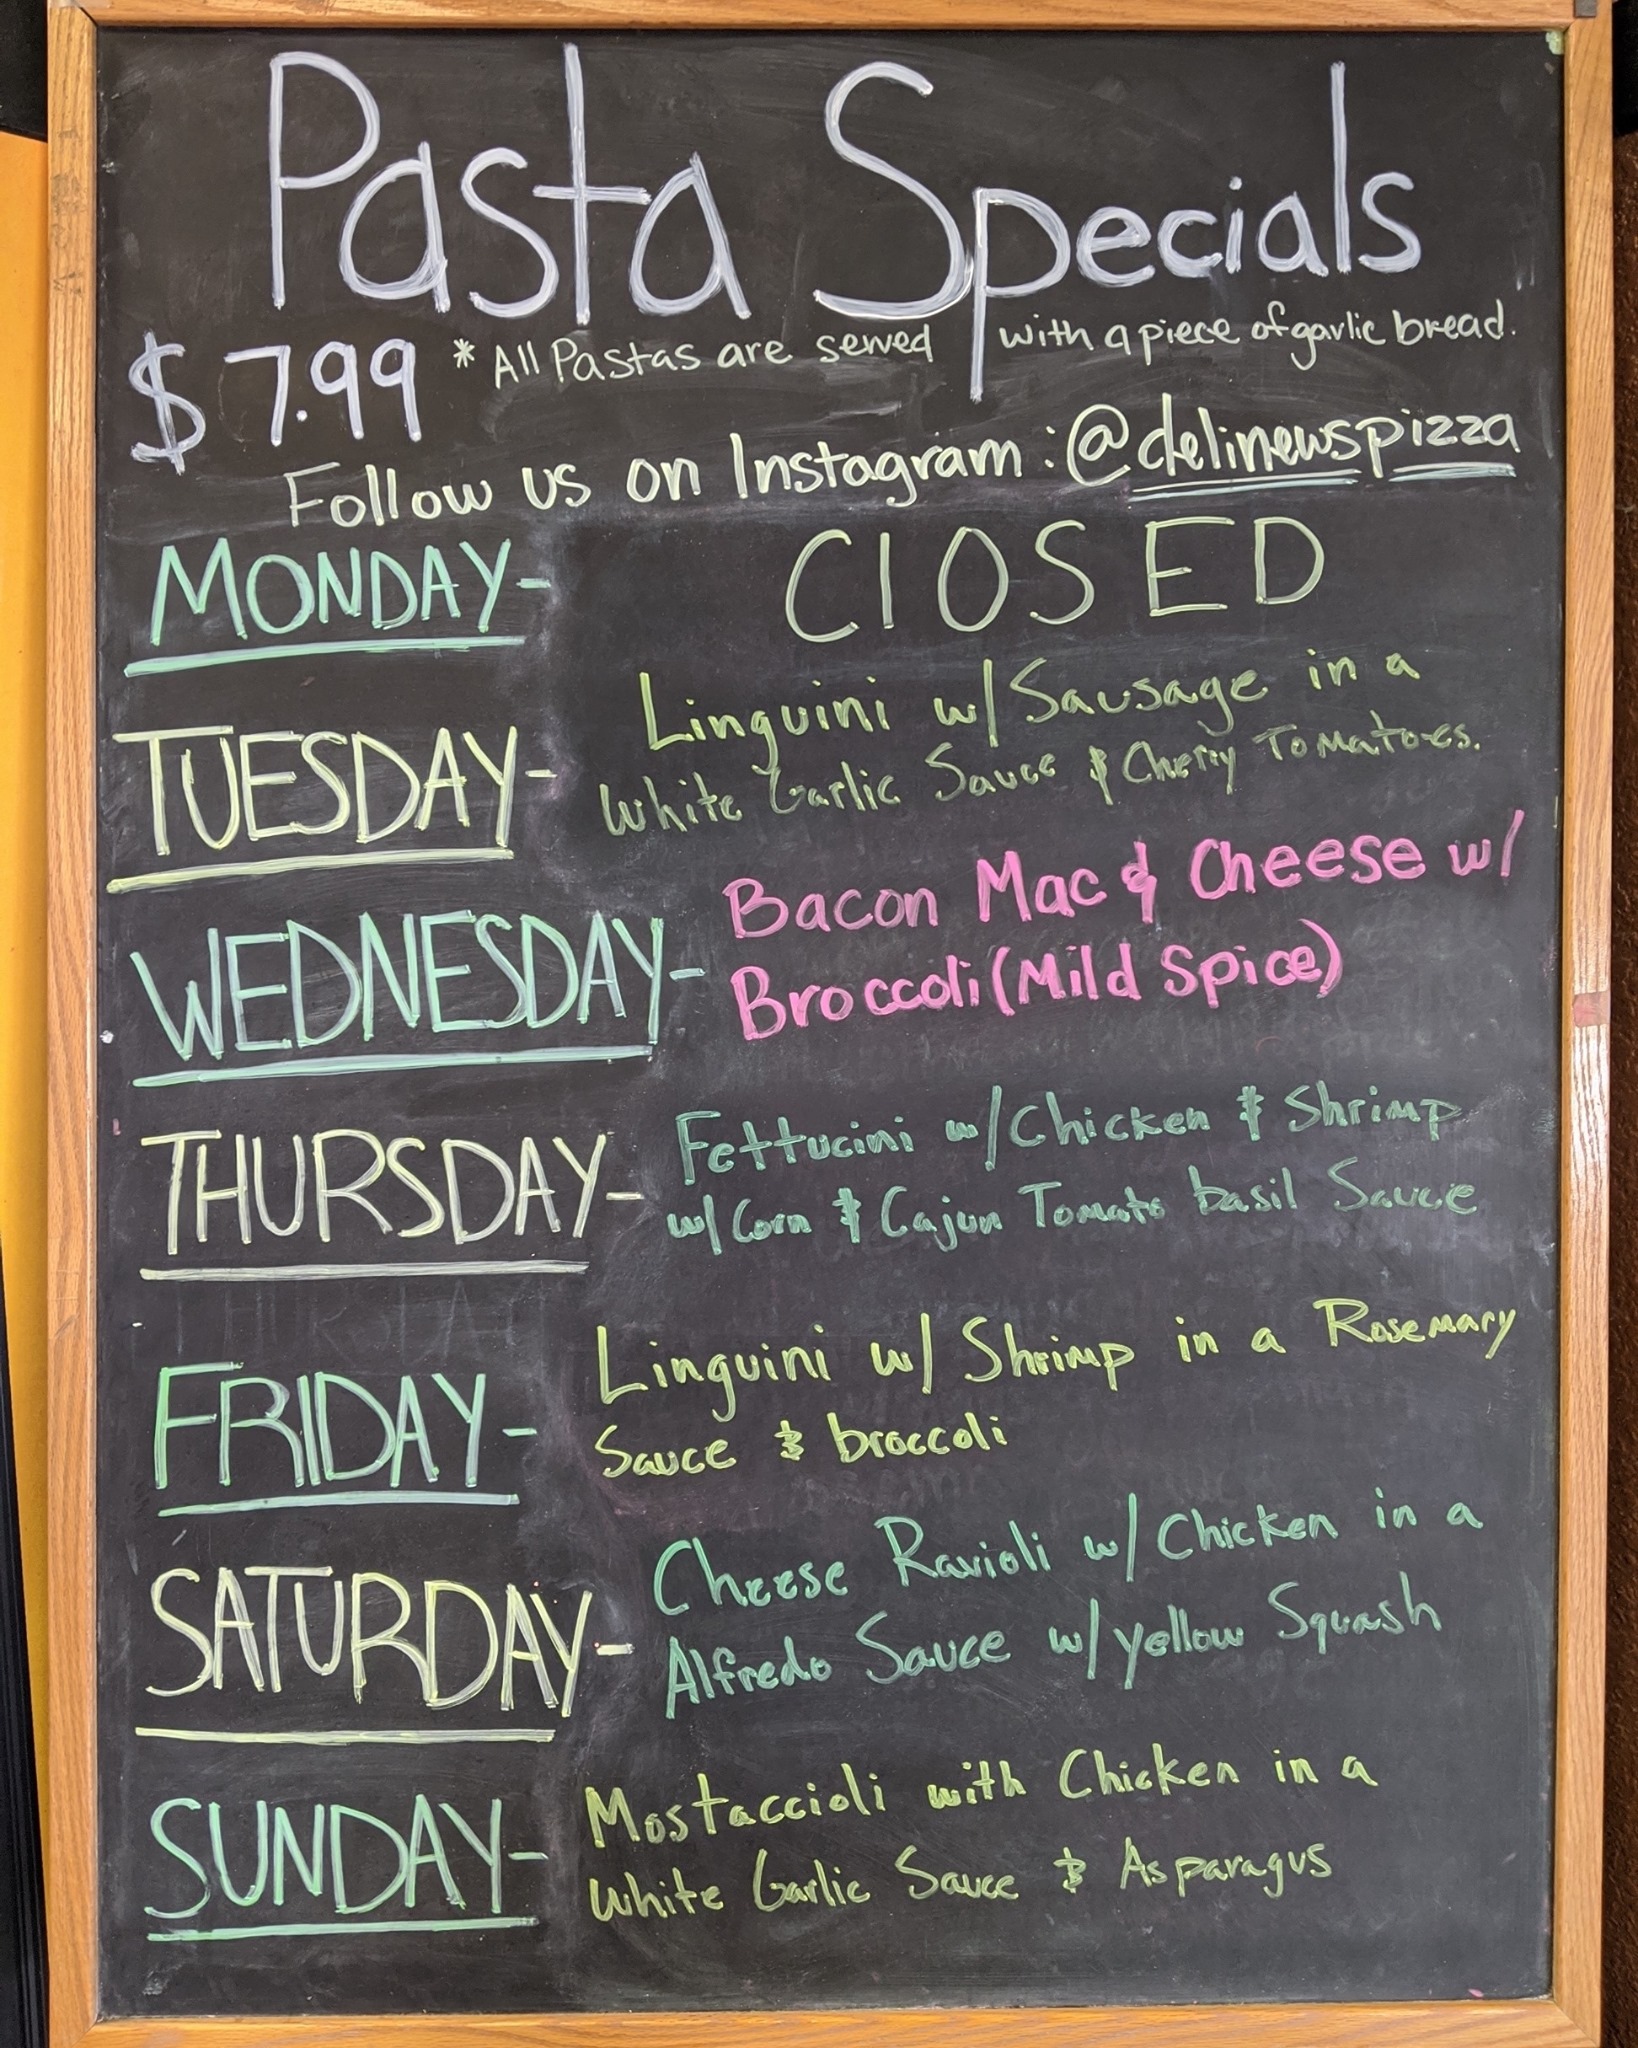 Pasta Specials
$7.99 *All Pastas are served with a piece of garlic bread.
Follow us on Instagram: @delinewspizza
MONDAY- ClOSED
TUESDAY- Linguini w/ Sausage in a
White Garlic Sauce & Cherry Tomatoes.
WEDNESDAY- Bacon Mac & Cheese w/
Broccoli (Mild Spice)
THURSDAY- Fettucini w/ Chicken & Shrimp
w/ Corn & Cajun Tomato basil Sauce
FRIDAY- Linguini w/ Shrimp in a Rosemary
Sauce & broccoli
SATURDAY- Cheese Ravioli w/ Chicken in a
Alfredo Sauce w/ yellow Squash
SUNDAY- Mostaccioli with Chicken in a
White Garlic Sauce & Asparagus